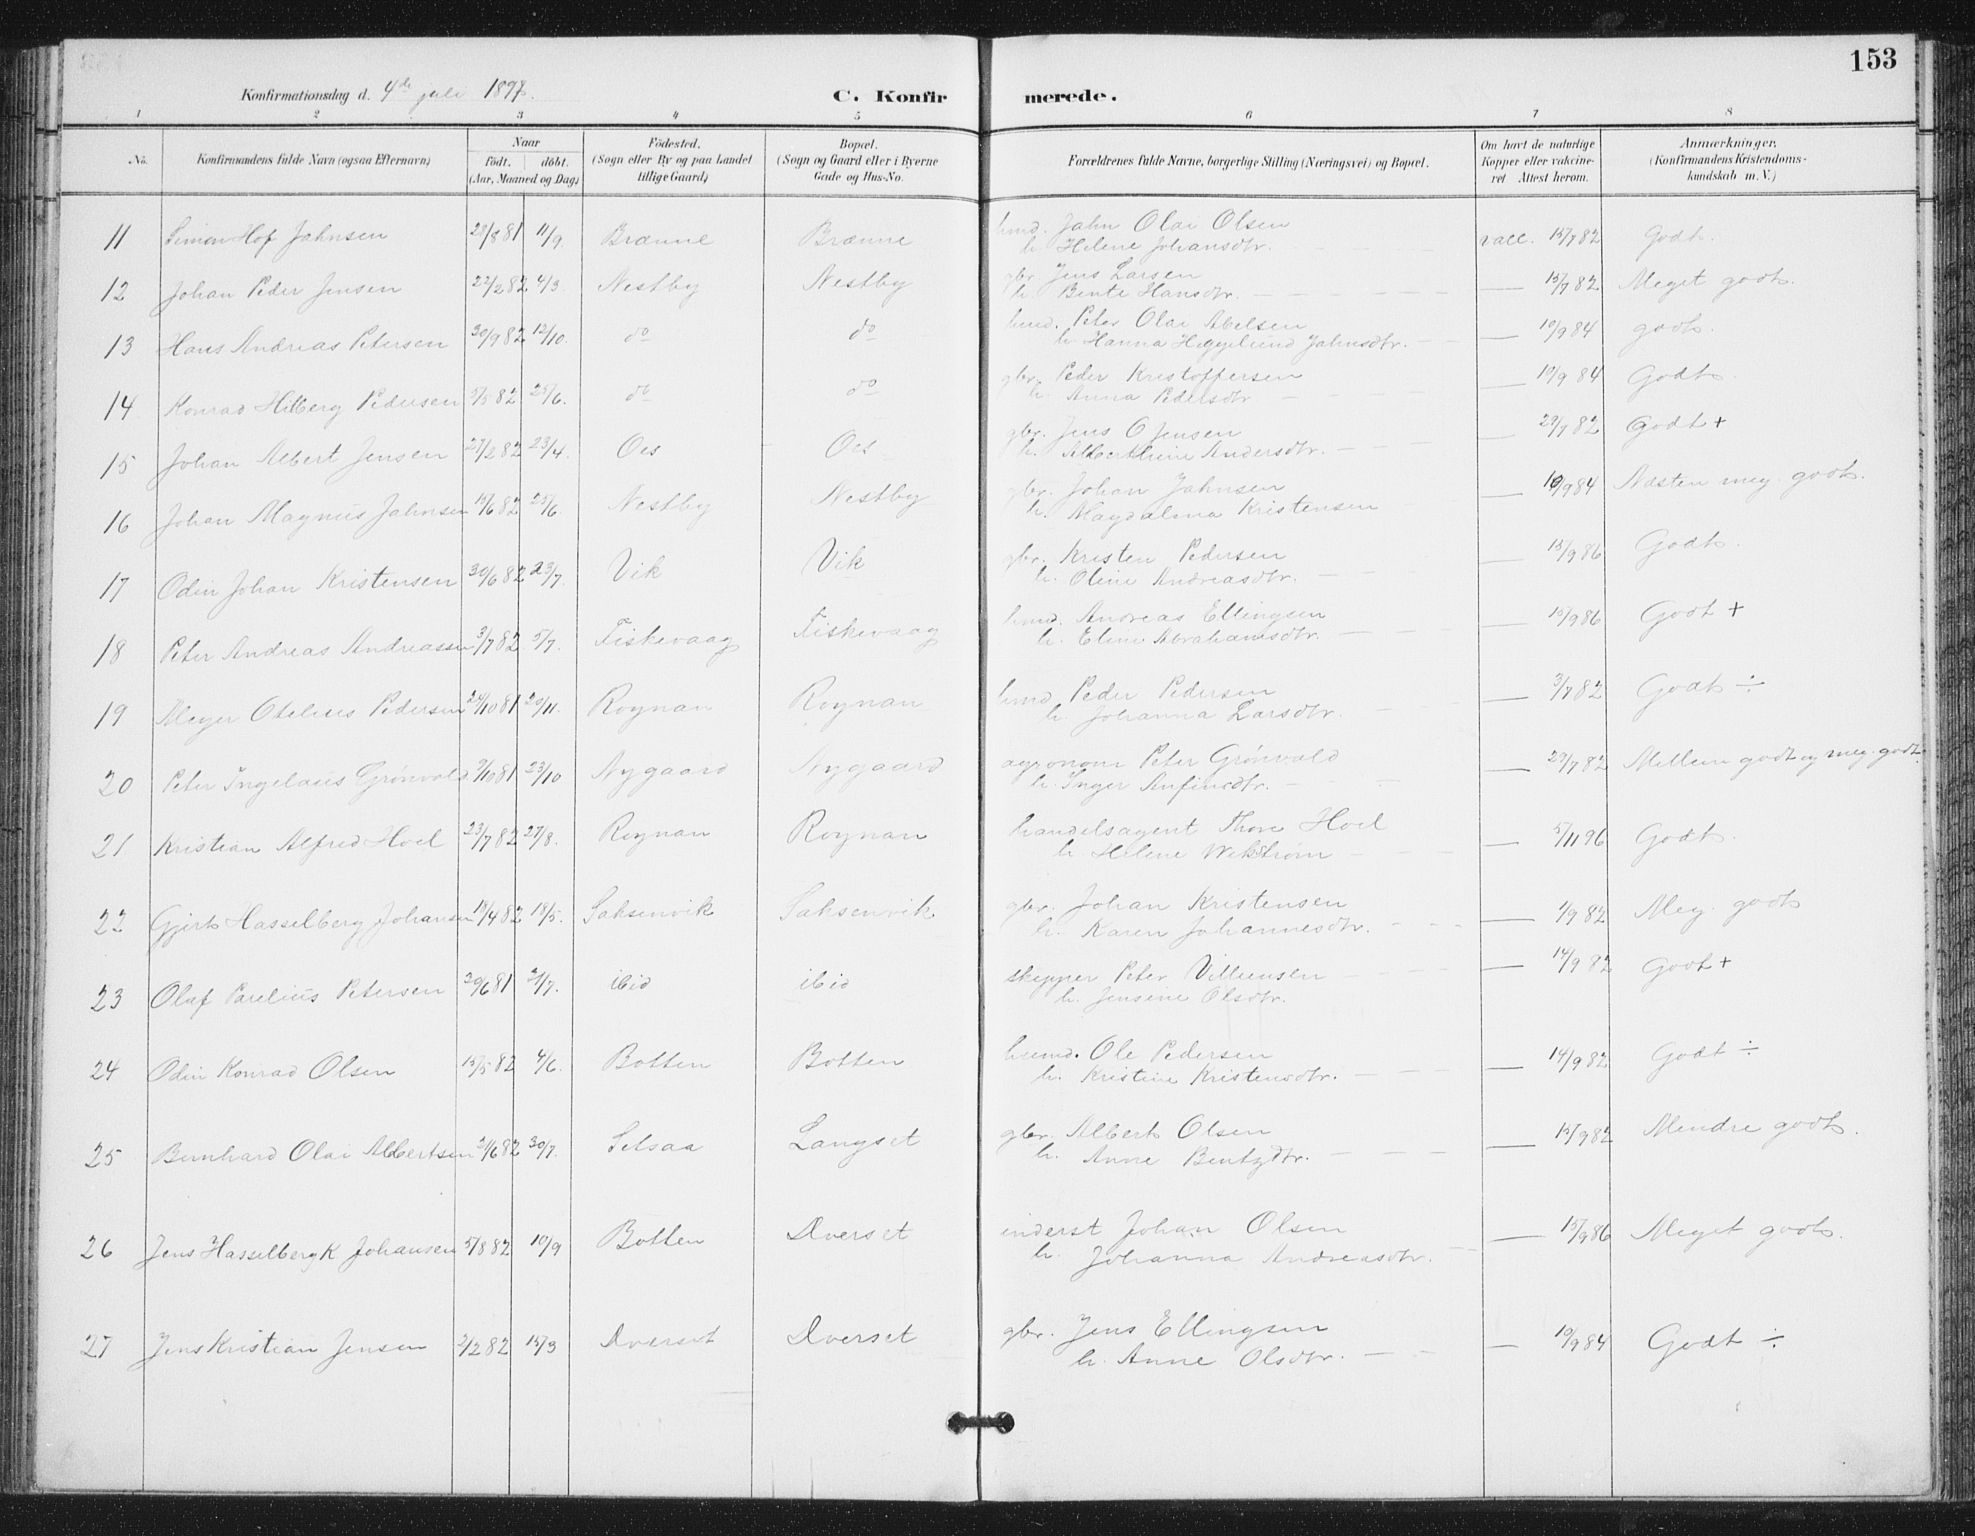 153
Konfirmationsdag d. 4de juli 1897.
C. Konfirmerede.
1 2 3 4 5 6 7 8
No. Konfirmandens fulde Navn (ogsaa Efternavn) Naar födt. döbt. (Aar, Maaned og Dag) Födested. (Sogn eller By og paa Landet tillige Gaard) Bopæl. (Sogn og Gaard eller i Byerne Gade og Hus-No. Forældrenes fulde Navne, borgerlige Stilling (Næringsvei) og Bopæl. Om havt de naturlige Kopper eller vaccineret Attest herom. Anmærkninger. (Konfirmandens Kristendomskundskab m. V.)
11 Simon Hof Jahnsen 28/8 81 11/9. Brænne Brænne hmd. Jahn Olai Olsen vacc. 15/7 82 Godt.
h. Helene Johansdtr.
12 Johan Peder Jensen 22/2 82 4/3. Nestby Nestby gbr. Jens Larsen — 15/7 82 Meget godt.
h. Bente Hansdtr.
13 Hans Andreas Petersen 30/9 82 15/10. do do hmd. Peter Olai Abelsen — 10/9 84 godt.
h. Hanna Heggelund Jahnsdtr.
14 Konrad Hilberg Pedersen 5/5 82 25/6. do do gbr. Peder Kristoffersen — 10/9 84 Godt.
h. Anna Pedersdtr
15 Johan Albert Jensen 27/2 82 23/4. Oes Oes gbr. Jens O Jensen — 29/7 82 Godt +
h. Alberthine Andersdtr.
16 Johan Magnus Jahnsen 15/6 82 25/6. Nestby Nestby gbr. Johan Jahnsen — 10/9 84 Næsten meg. godt.
h. Magdalena Kristensen
17 Odin Johan Kristensen 30/6 82 23/7. Vik Vik gbr. Kristen Pedersen — 15/9 86 Godt.
h. Oline Andreasdtr.
18 Peter Andreas Andreassen 3/7 82 5/7. Fiskevaag Fiskevaag hmd. Andreas Ellingsen — 15/9 86 Godt +
h. Eline Abrahamsdtr.
19 Meyer Otelius Pedersen 24/10 81 20/11. Rognan Rognan hmd. Peder Pedersen — 3/7 82 Godt ÷
h. Johanna Larsdtr.
20 Peter Ingelaus Grönvold 9/10 81 23/10 Nygaard Nygaard agronom Peter Grönvold — 29/7 82 Mellem godt og meg. godt.
h. Inger Anfinsdtr.
21 Kristian Alfred Hoel 23/7 82 27/8. Rognan Rognan handelsagent Thore Hoel — 5/11 96 Godt.
h. Helene Wekström
22 Gjert Hasselberg Johansen 18/4 82 18/5. Saksenvik Saksenvik gbr. Johan Kristensen — 1/9 82 Meg. godt
h. Karen Johannesdtr.
23 Olaf Parelius Petersen 29/6 81 21/7. ibid ibid skipper Peter Villumsen — 14/9 82 Godt +
h. Jensine Olsdtr.
24 Odin Konrad Olsen 15/5 82 4/6. Botten Botten husmd. Ole Pedersen — 14/9 82 Godt ÷
h. Kristine Kristensdtr.
25 Bernhard Olai Albertsen 2/6 82 30/7. Setsaa Langset gbr. Albert Olsen — 15/9 82 Mindre godt.
h. Anne Bentzdtr.
26 Jens Hasselbergk Johansen 5/8 82 10/9 Botten Dverset inderst Johan Olsen — 15/9 86 Meget godt.
h. Johanna Andreasdtr.
27 Jens Kristian Jensen 2/2 82 15/3 Dverset Dverset gbr. Jens Ellingsen — 10/9 84 Godt ÷
h. Anne Olsdtr.